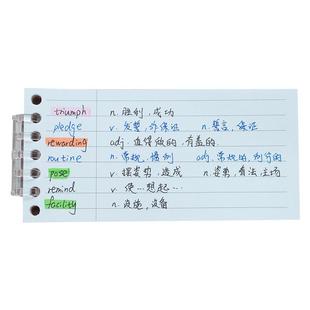 triumph n. 胜利,成功
pledge v. 发誓,作保证 n. 誓言,保证
rewarding adj. 值得做的,有益的
routine n. 常规,惯例 adj. 常规的,例行的
pose v. 摆姿势,造成 n. 姿势,看法立场
remind v. 使…想起…
facility n. 设施,设备